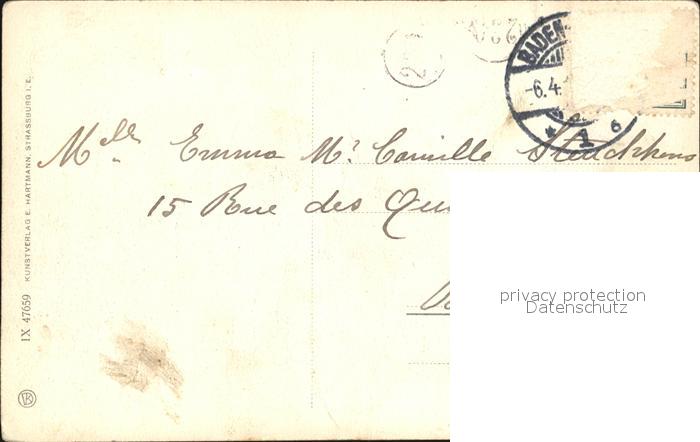 BADEN-
-6.4.
* 1 6
Mlle Emma Mr Camille
15 Rue des
privacy protection
Datenschutz
IX 47659 KUNSTVERLAG E. HARTMANN, STRASSBURG I. E.